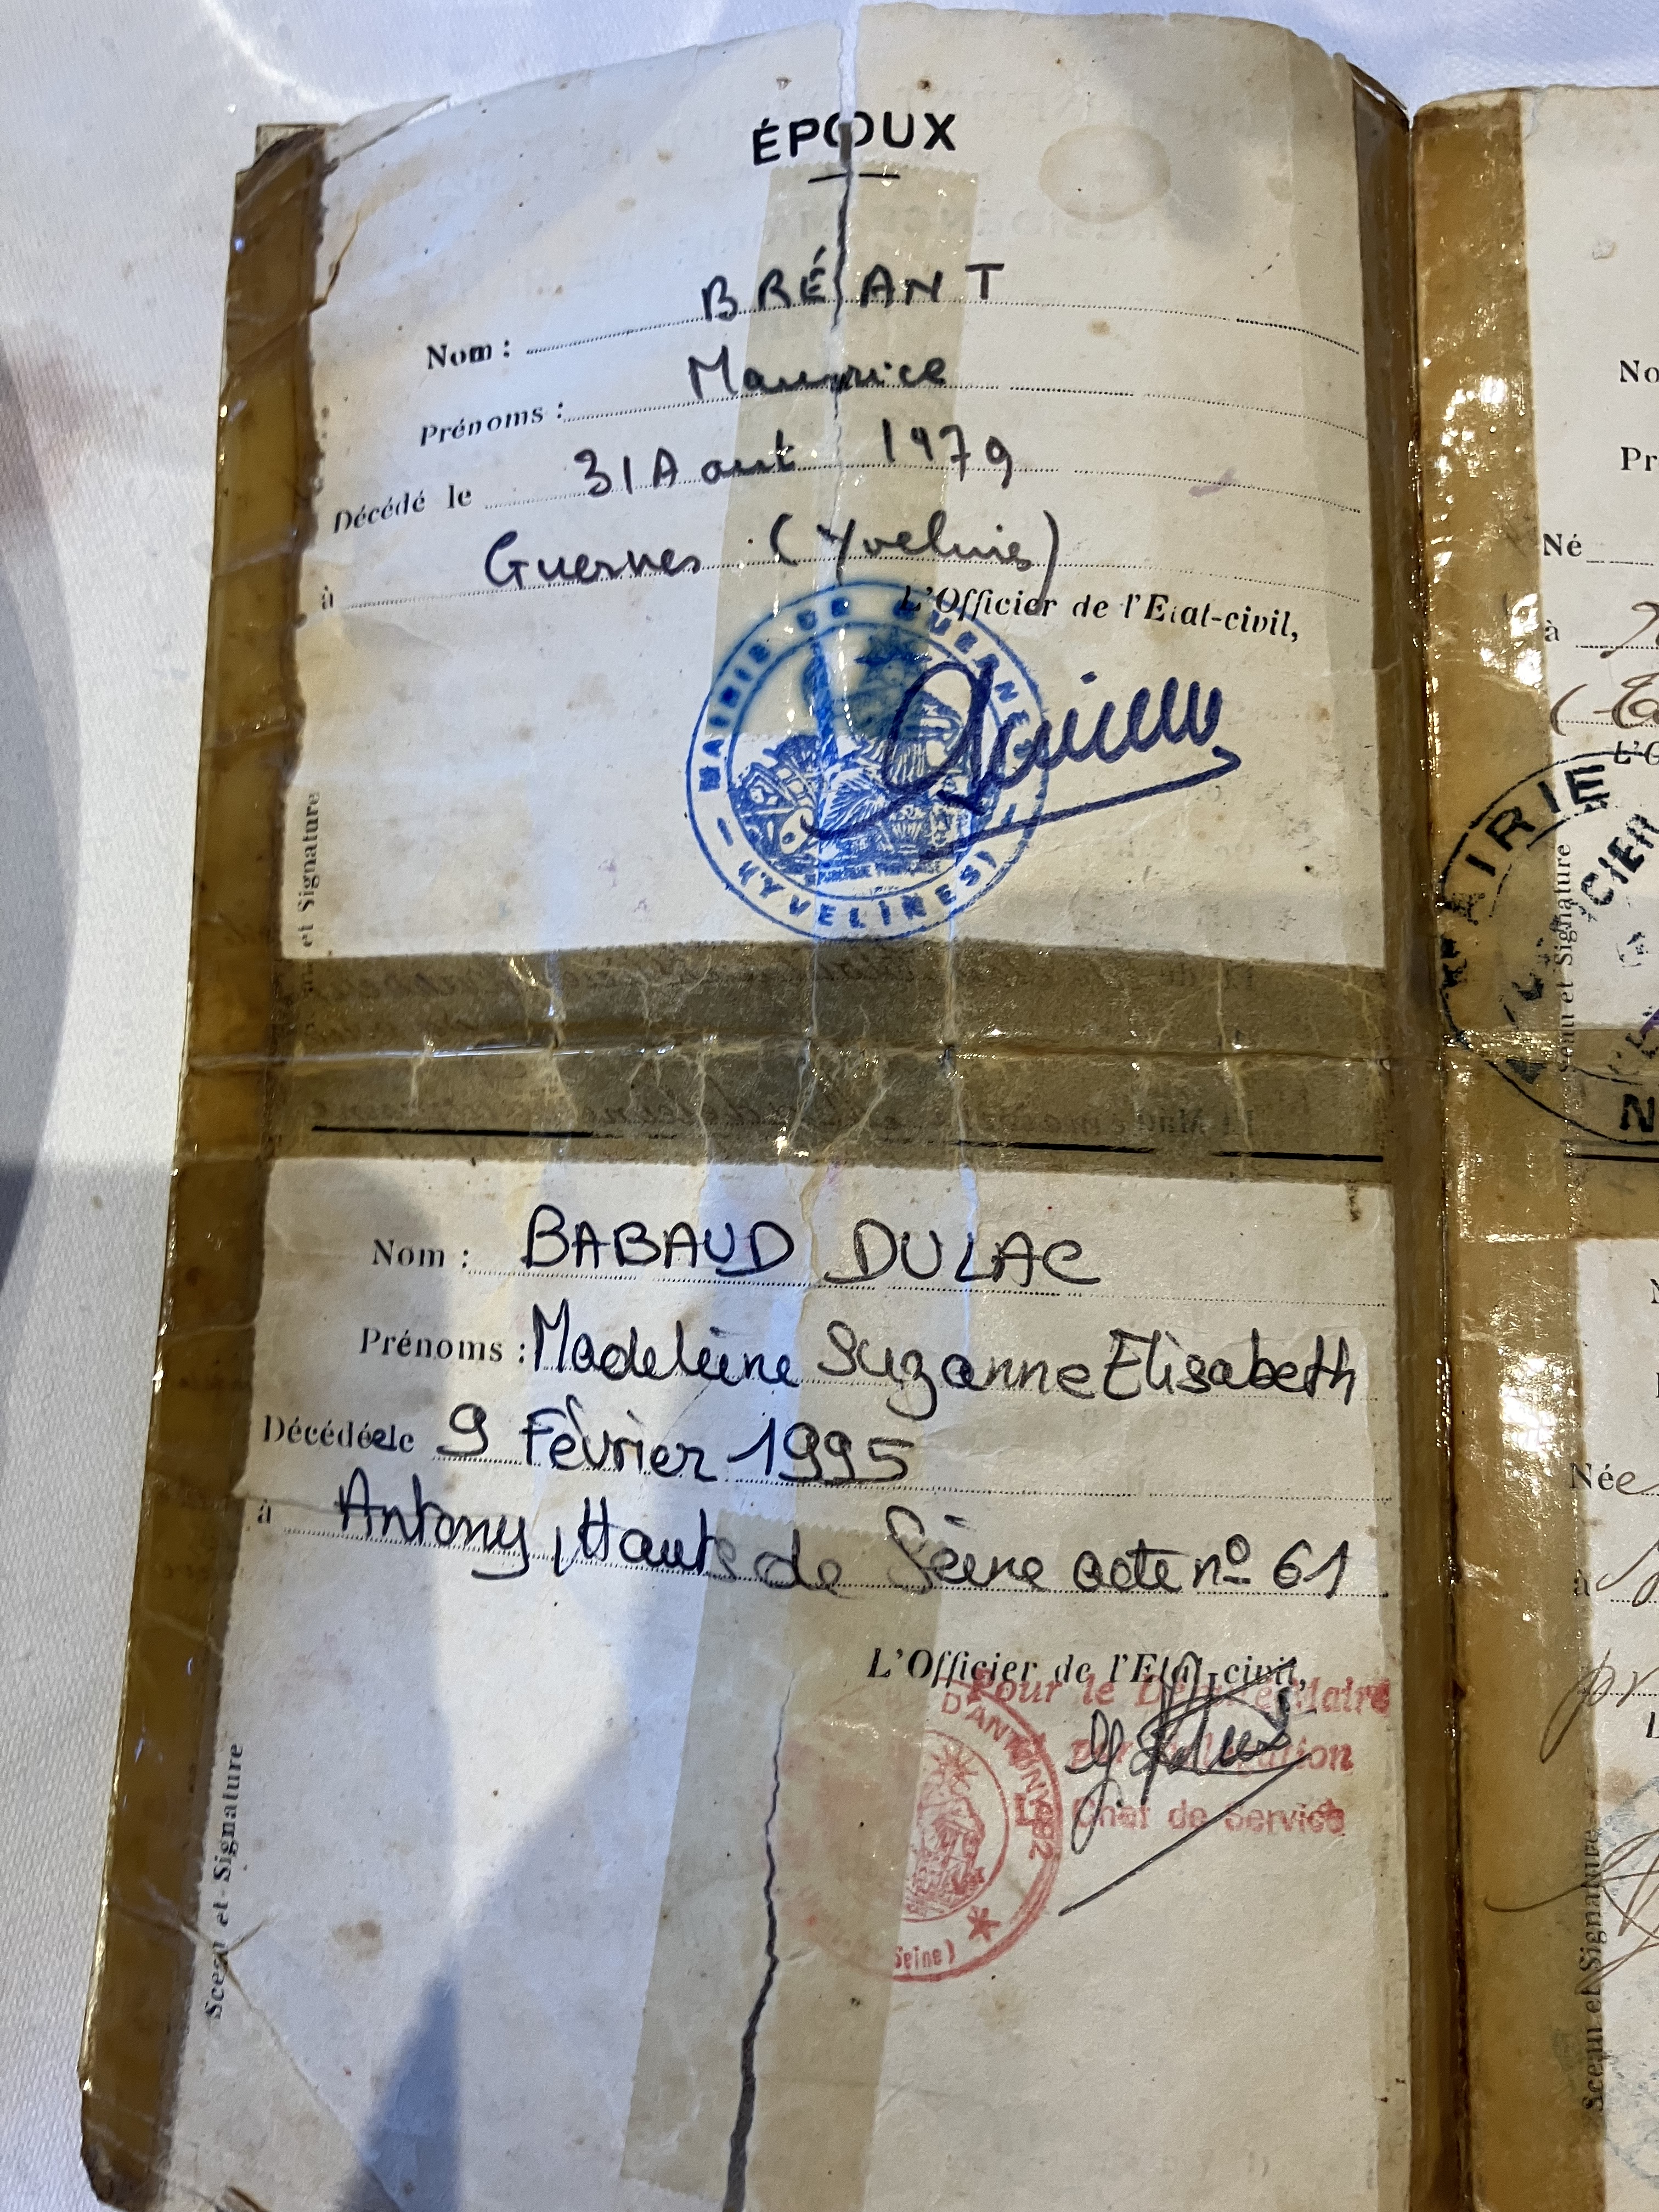 ÉPOUX
Nom : BRÉANT
Prénoms : Maurice
Décédé le 31 Aout 1979
à Guernes (Yvelines)
L'Officier de l'Etat-civil,
MAIRIE DE GUERNES
(YVELINES)
et Signature
Nom : BABAUD DULAC
Prénoms : Madeleine Suzanne Elisabeth
Décédée le 9 Février 1995
à Antony, Hauts de Seine acte nº 61
L'Officier de l'Etat-civil,
Pour le Maire
Le Chef de Service
D'ANTONY 92
Seine)
Sceau et Signature
No
Pr
Né
à
L'O
MAIRIE
Sceau et Signature
N
Née
à
pr
L
Sceau et Signature